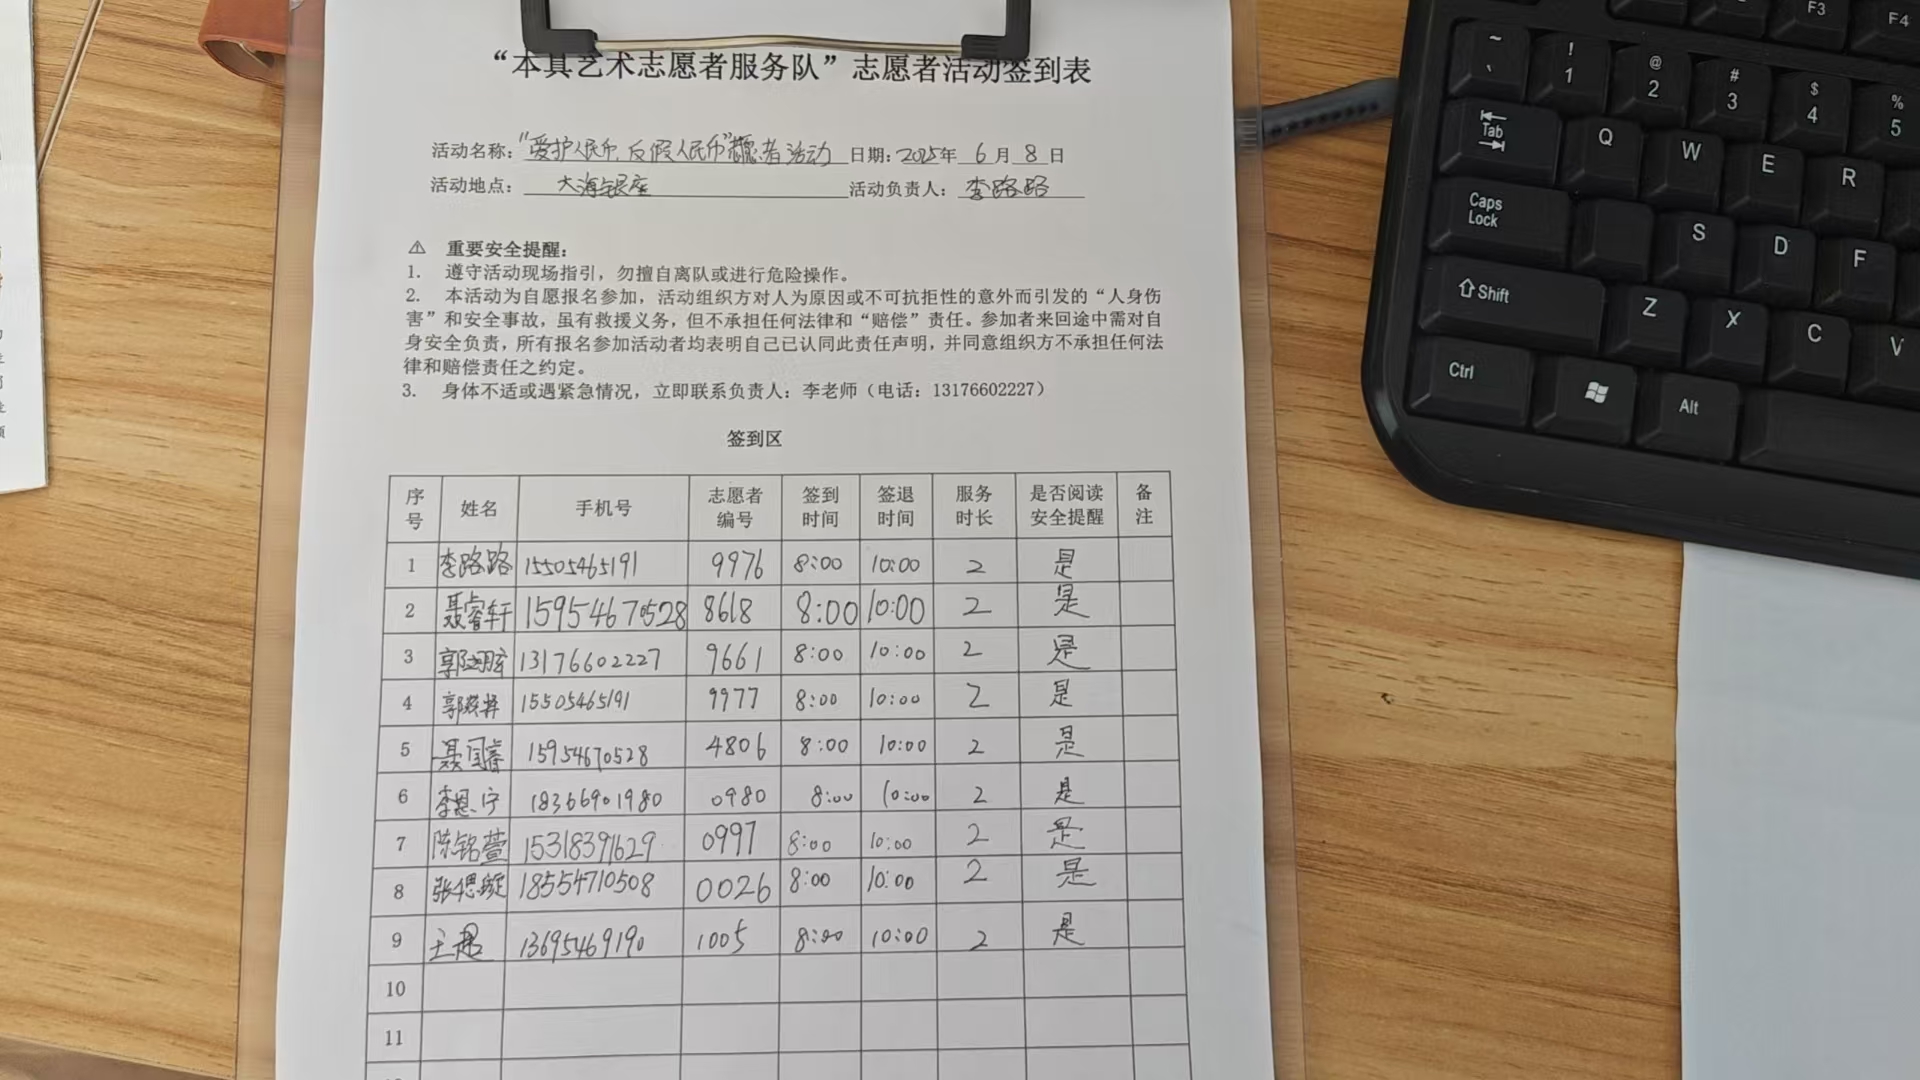 “本真艺术志愿者服务队”志愿者活动签到表
活动名称：“爱护人民币、反假人民币”志愿者活动 日期：2025年 6 月 8 日
活动地点： 大海银座 活动负责人： 李路路
⚠ 重要安全提醒：
1. 遵守活动现场指引，勿擅自离队或进行危险操作。
2. 本活动为自愿报名参加，活动组织方对人为原因或不可抗拒性的意外而引发的“人身伤
害”和安全事故，虽有救援义务，但不承担任何法律和“赔偿”责任。参加者来回途中需对自
身安全负责，所有报名参加活动者均表明自己已认同此责任声明，并同意组织方不承担任何法
律和赔偿责任之约定。
3. 身体不适或遇紧急情况，立即联系负责人：李老师（电话：13176602227）
签到区
序号 姓名 手机号 志愿者编号 签到时间 签退时间 服务时长 是否阅读安全提醒 备注
1 李路路 15505465191 9976 8:00 10:00 2 是
2 聂睿轩 15954670528 8618 8:00 10:00 2 是
3 郭 13176602227 9661 8:00 10:00 2 是
4 郭 15505465191 9977 8:00 10:00 2 是
5 聂闫睿 15954670528 4806 8:00 10:00 2 是
6 李思宁 18366901980 0980 8:00 10:00 2 是
7 陈铭萱 15318391629 0997 8:00 10:00 2 是
8 张思璇 18554710508 0026 8:00 10:00 2 是
9 王超 13695469190 1005 8:00 10:00 2 是
10
11
~ `
! 1
@ 2
# 3
$ 4
% 5
F3
F4
Tab Q W E R
Caps Lock S D F
Shift Z X C V
Ctrl Alt